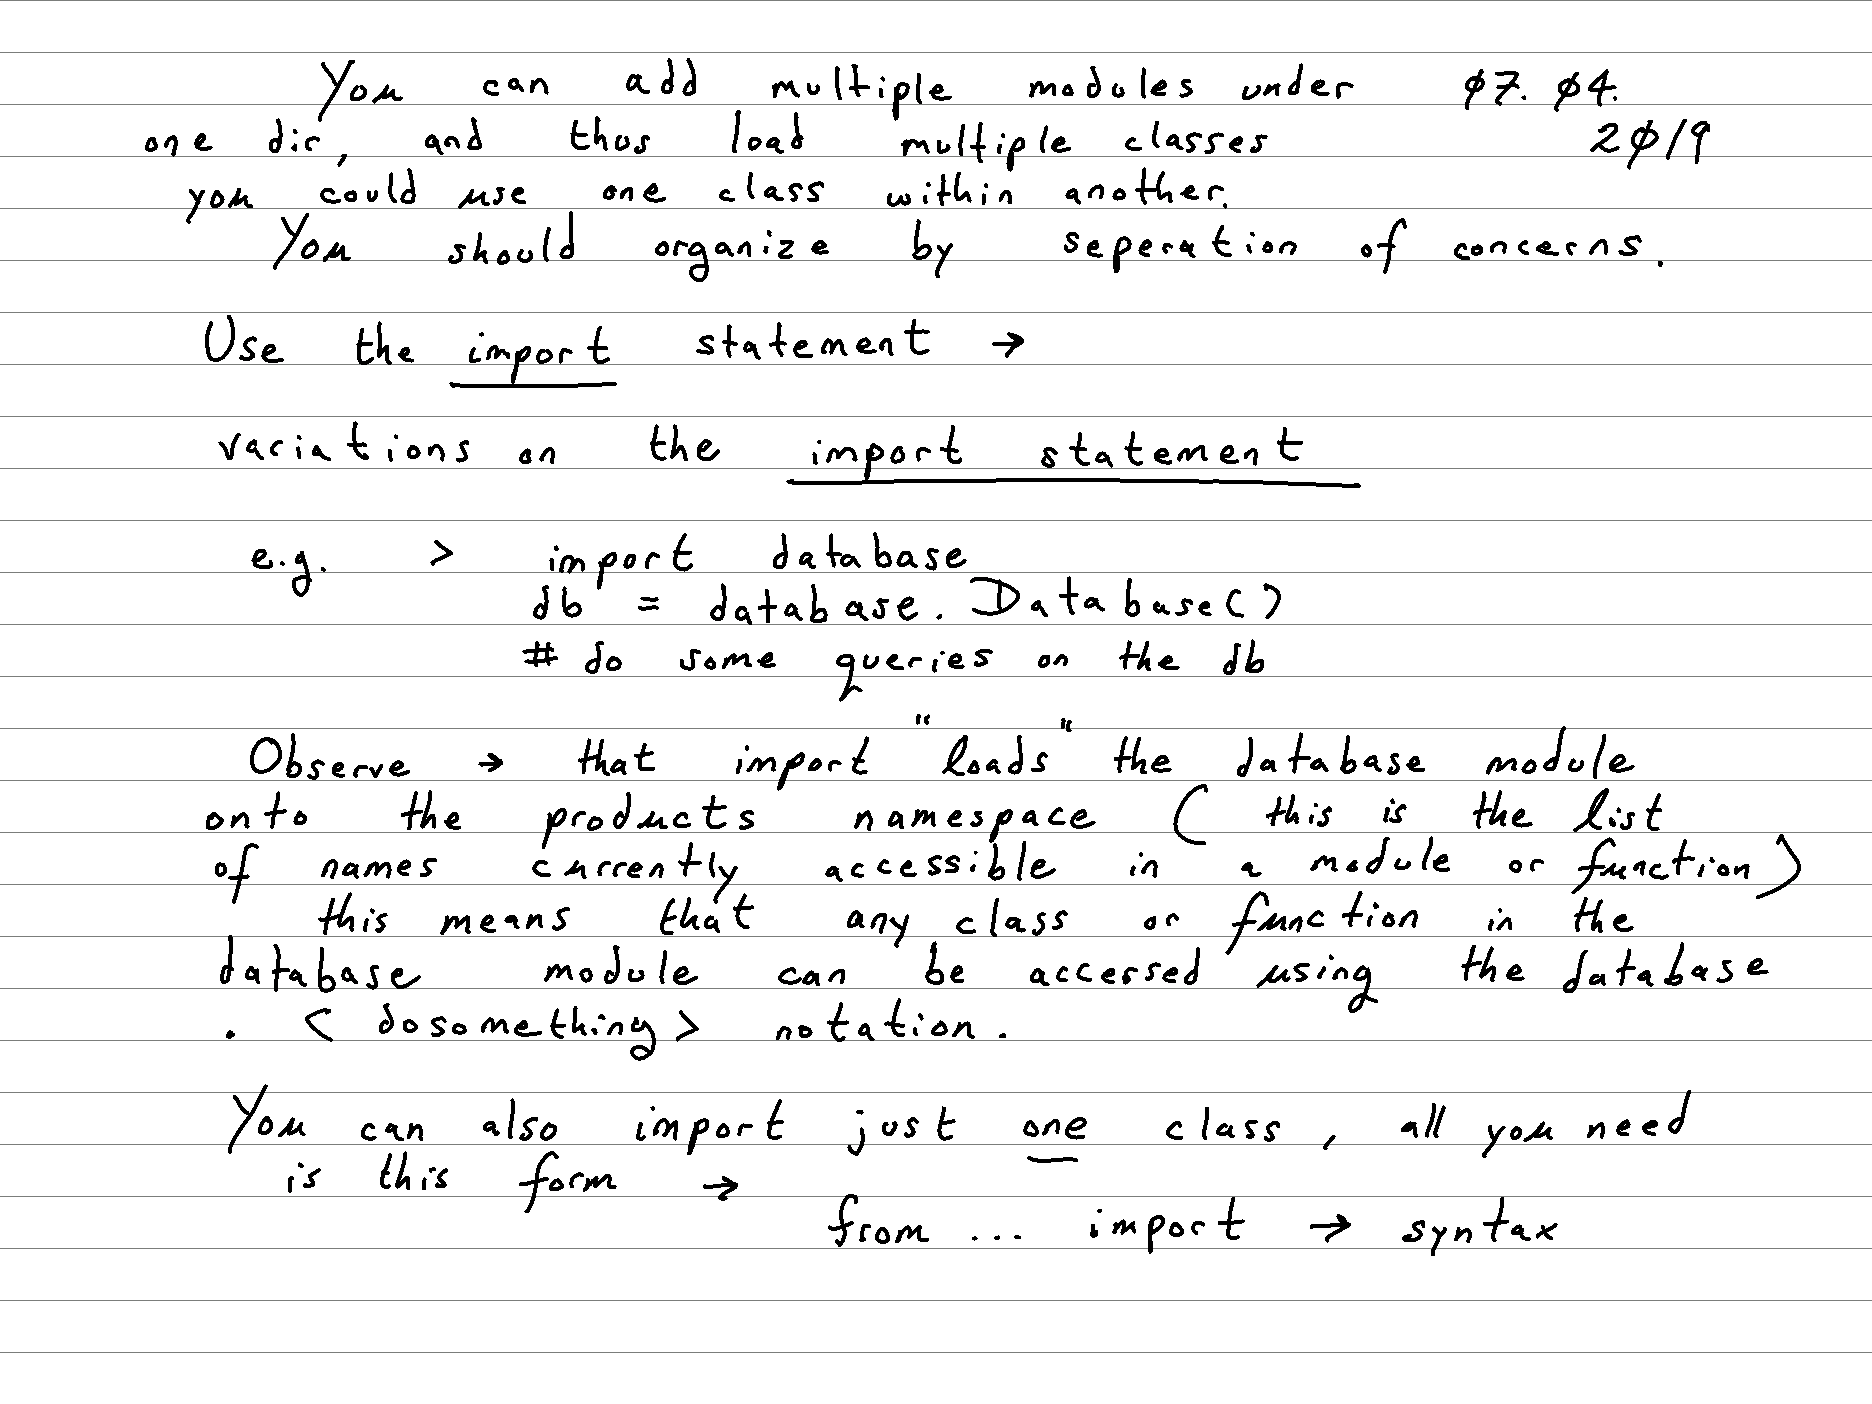 You can add multiple modules under ø7. ø4.
one dir, and thus load multiple classes 2ø19
you could use one class within another.
You should organize by seperation of concerns.
Use the import statement →
variations on the import statement
e.g. > import database
db = database. Database()
# do some queries on the db
Observe → that import "loads" the database module
onto the products namespace ( this is the list
of names currently accessible in a module or function)
this means that any class or function in the
database module can be accessed using the database
. < dosomething> notation.
You can also import just one class, all you need
is this form →
from ... import → syntax